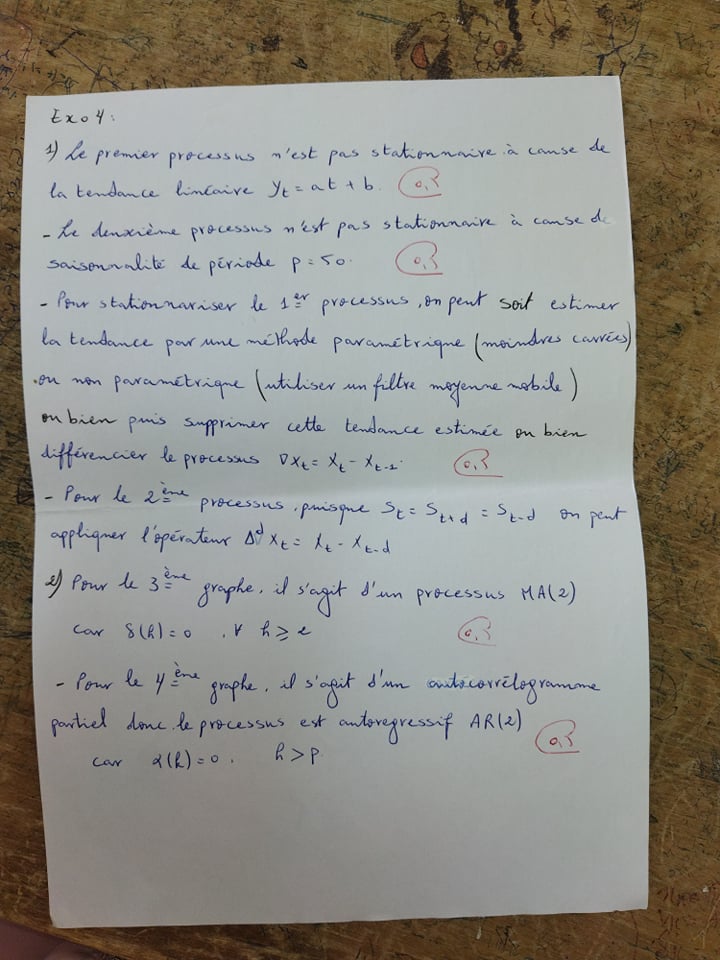 Exo 4 :
1) Le premier processus n'est pas stationnaire à cause de
la tendance linéaire yt = at + b. 0,5
- Le deuxième processus n'est pas stationnaire à cause de
saisonnalité de période p = 50. 0,5
- Pour stationnariser le 1er processus, on peut soit estimer
la tendance par une méthode paramétrique (moindres carrées)
ou non paramétrique (utiliser un filtre moyenne mobile)
ou bien puis supprimer cette tendance estimée ou bien
différencier le processus ∇Xt = Xt - Xt-1. 0,5
- Pour le 2ème processus, puisque St = St+d = St-d on peut
appliquer l'opérateur Δd Xt = Xt - Xt-d
2) Pour le 3ème graphe, il s'agit d'un processus MA(2)
car δ(h) = 0 , ∀ h ≥ 2 0,5
- Pour le 4ème graphe, il s'agit d'un autocorrélogramme
partiel donc le processus est autoregressif AR(2) 0,5
car α(h) = 0. h > p